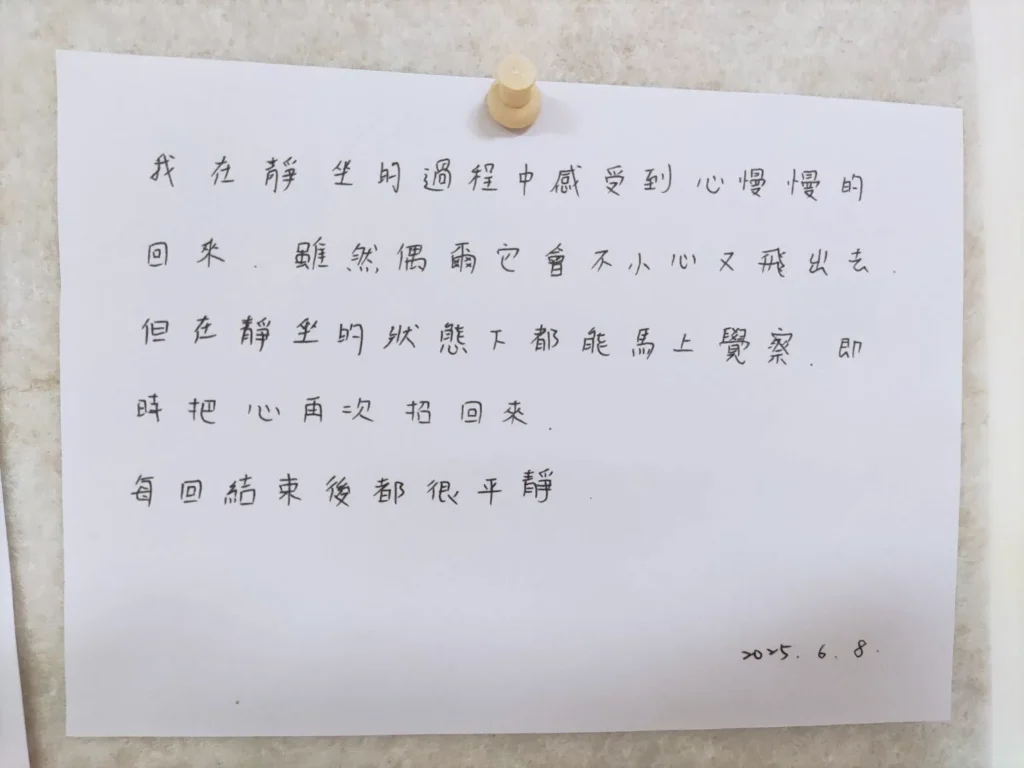 我在靜坐的過程中感受到心慢慢的
回來.雖然偶爾它會不小心又飛出去.
但在靜坐的狀態下都能馬上覺察.即
時把心再次招回來.
每回結束後都很平靜.
2025.6.8.